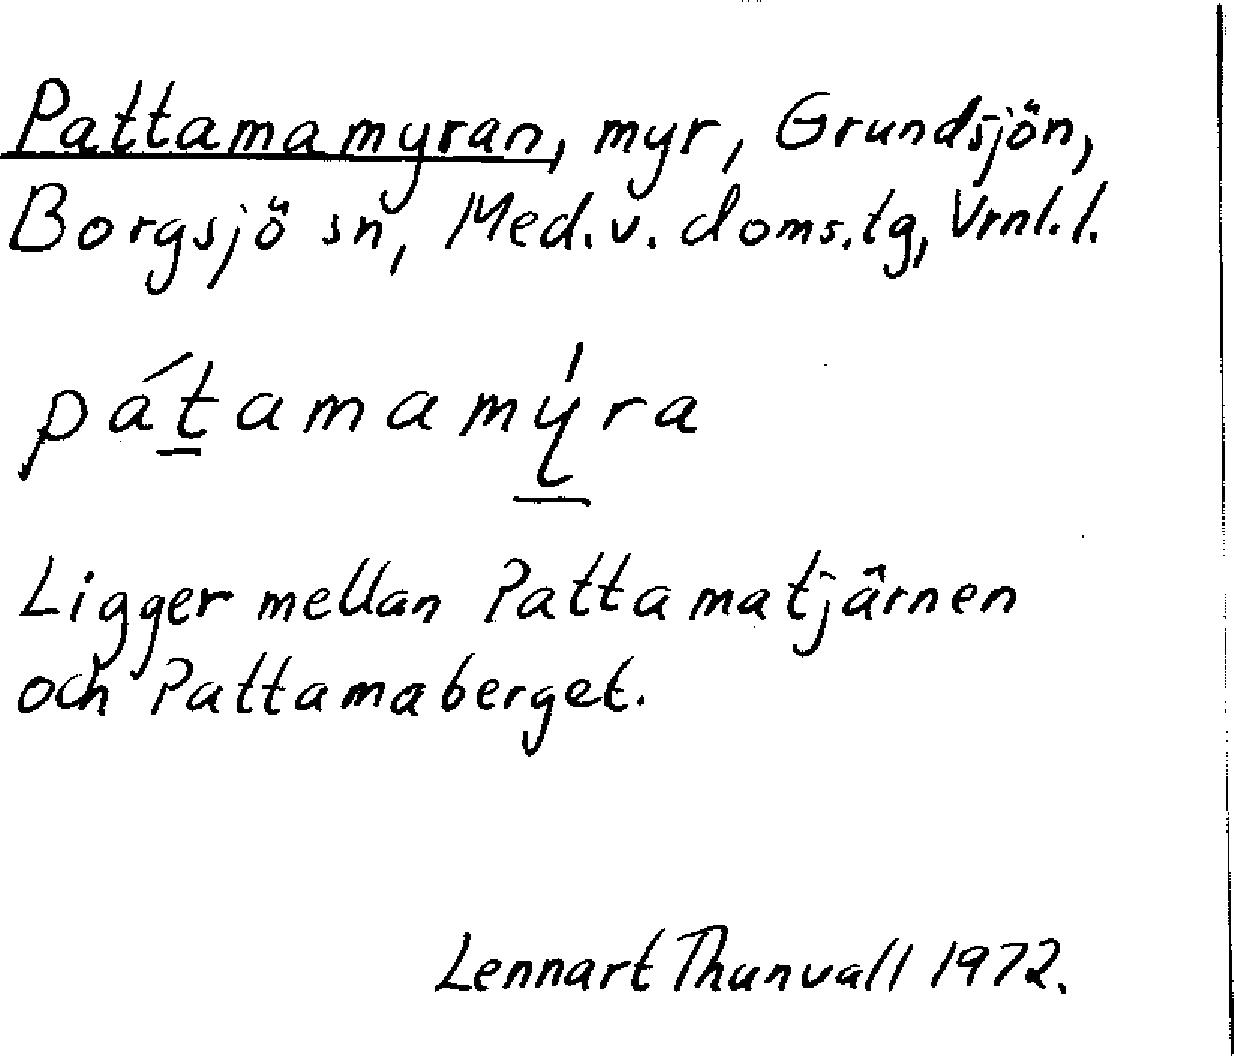 Pattamamyran, myr, Grundsjön,
Borgsjö sn, Med. v. doms.lg, Vrnl. l.
pát̲amamý̲ra
Ligger mellan Pattamatjärnen
och Pattamaberget.
Lennart Thunvall 1972.